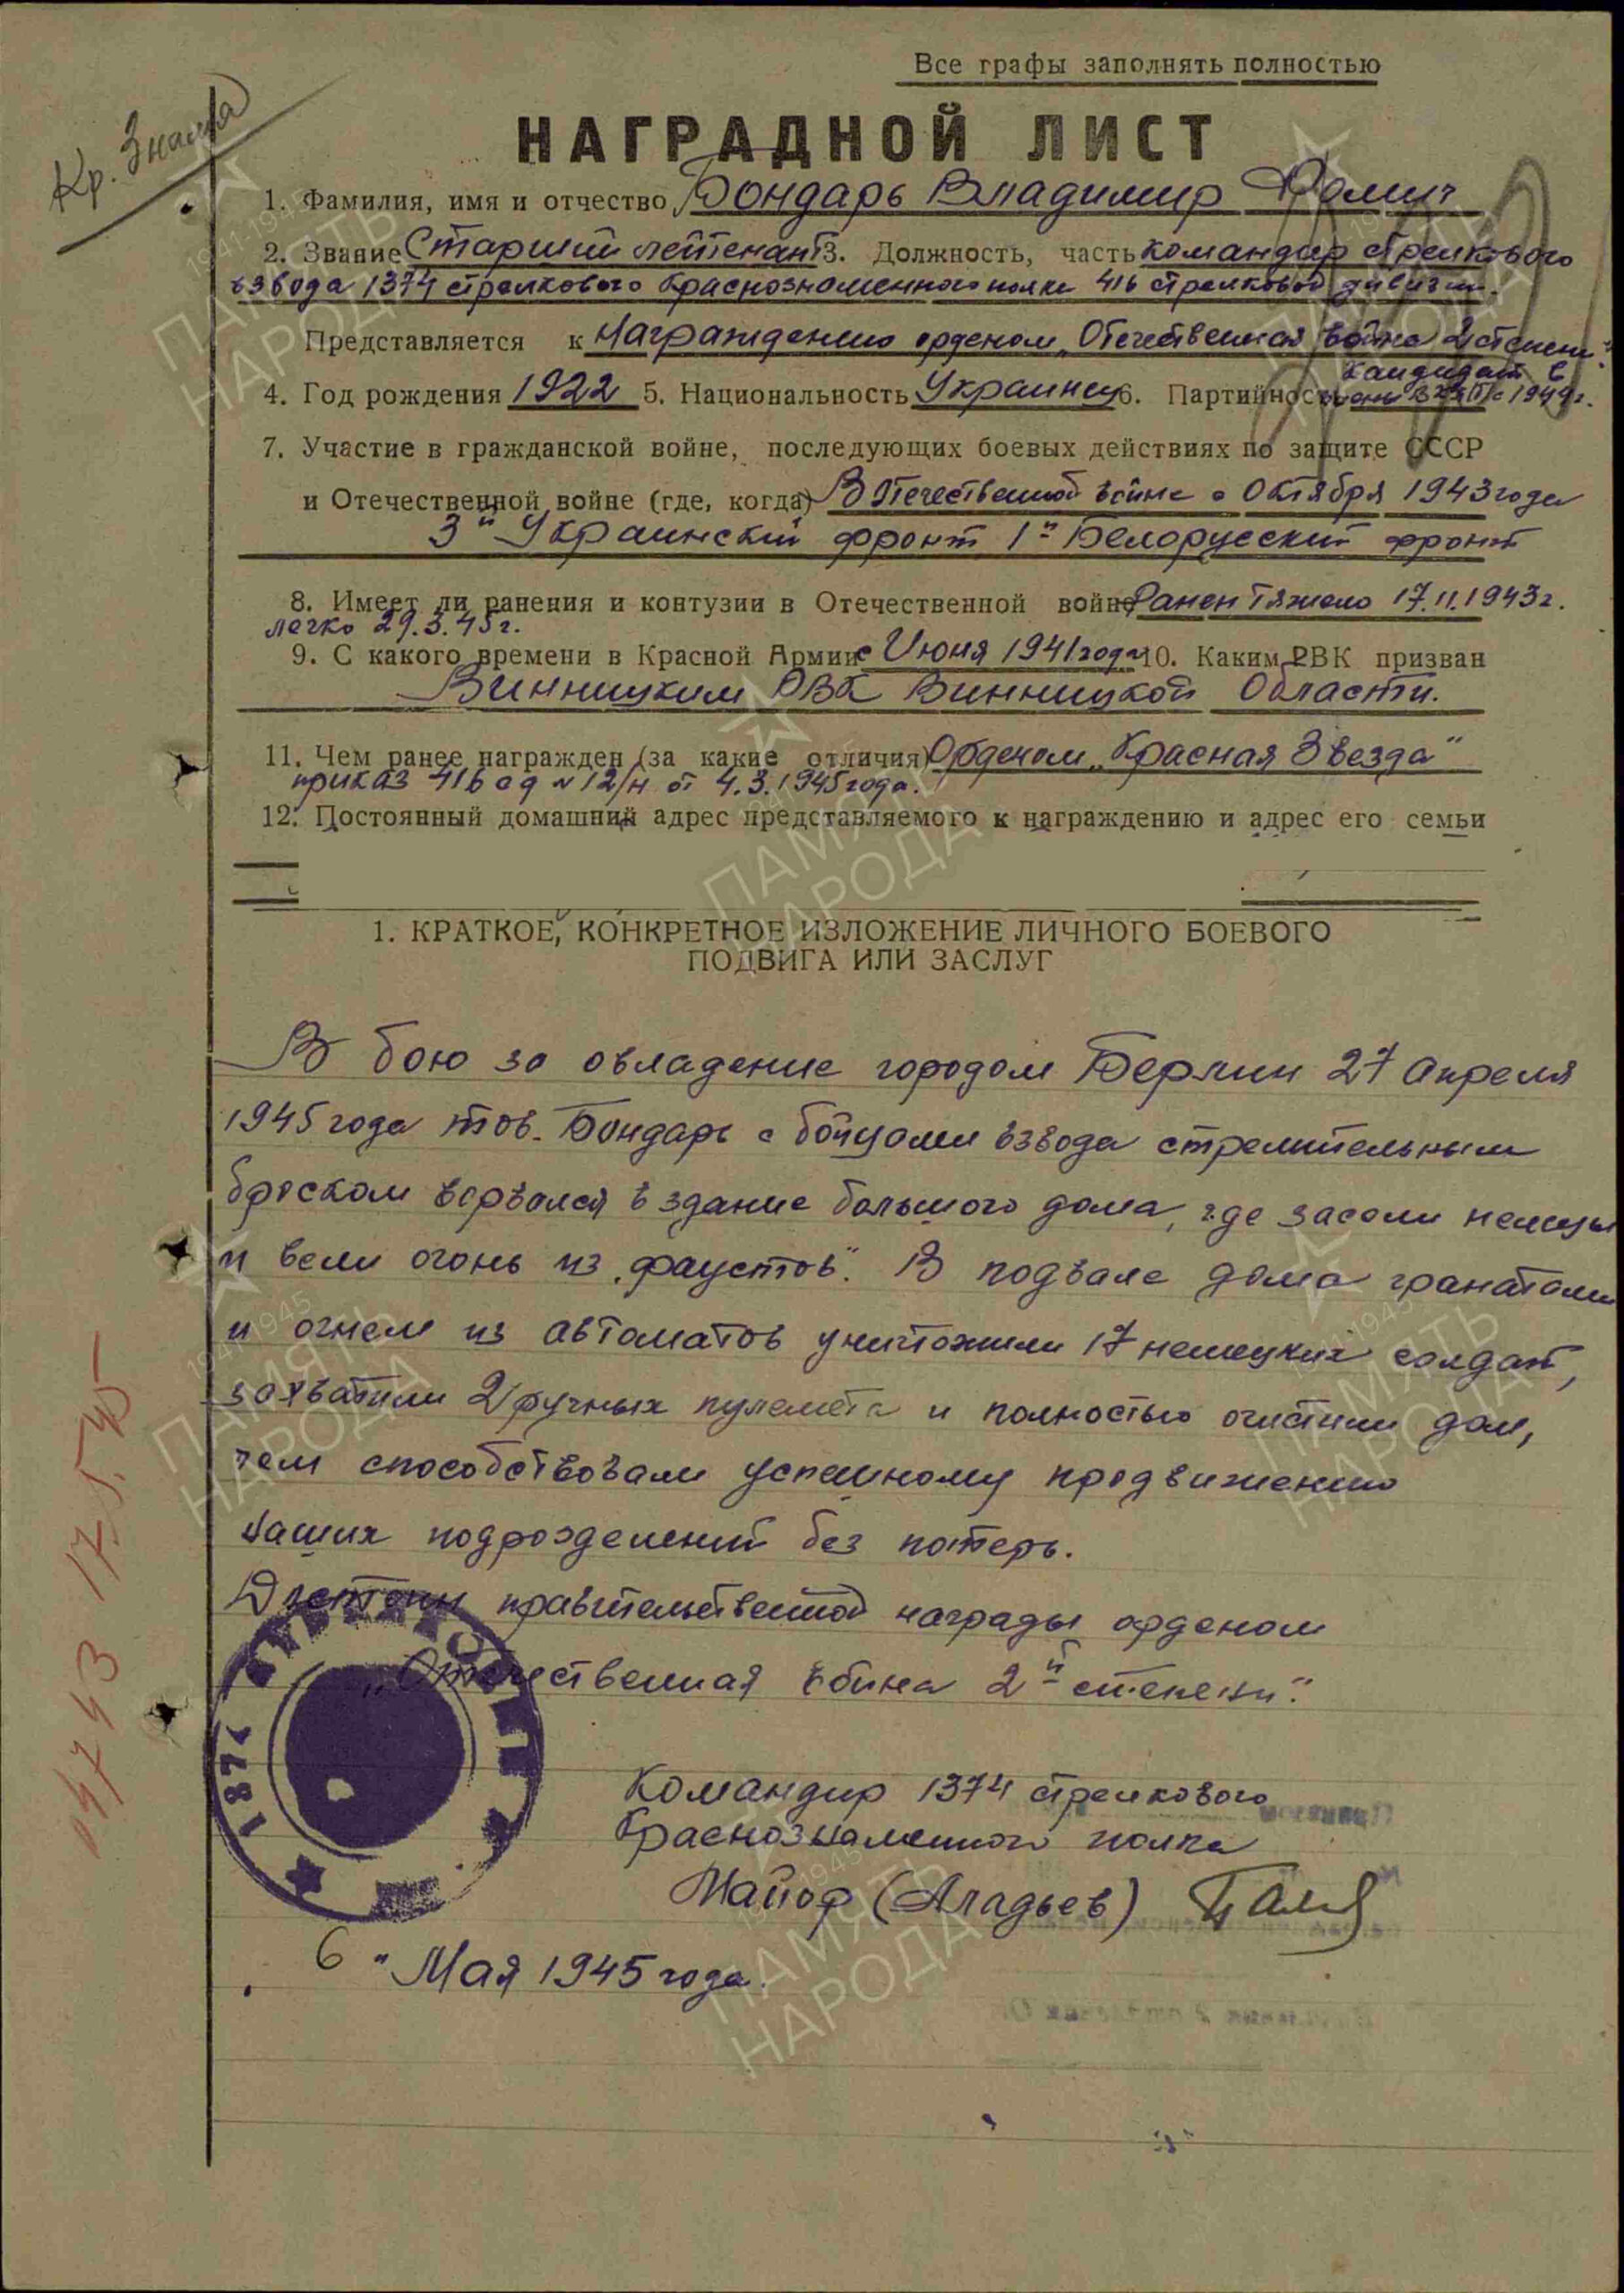 Все графы заполнять полностью
Кр. Знамя
НАГРАДНОЙ ЛИСТ
1. Фамилия, имя и отчество Бондарь Владимир Фомич
2. Звание Старший лейтенант 3. Должность, часть командир стрелкового
взвода 1374 стрелкового Краснознаменного полка 416 стрелковой дивизии.
Представляется к награждению орденом „Отечественная война 2 степени"
4. Год рождения 1922 5. Национальность Украинец 6. Партийность кандидат в
члены ВКП/б с 1944 г.
7. Участие в гражданской войне, последующих боевых действиях по защите СССР
и Отечественной войне (где, когда) В Отечественной войне с Октября 1943 года
3й Украинский фронт 1й Белорусский фронт
8. Имеет ли ранения и контузии в Отечественной войне Ранен тяжело 17.11.1943 г.
легко 29.3.45 г.
9. С какого времени в Красной Армии с Июня 1941 года 10. Каким РВК призван
Винницким РВК Винницкой Области.
11. Чем ранее награжден (за какие отличия) Орденом „Красная Звезда"
приказ 416 сд № 12/н от 4.3.1945 года.
12. Постоянный домашний адрес представляемого к награждению и адрес его семьи
1. КРАТКОЕ, КОНКРЕТНОЕ ИЗЛОЖЕНИЕ ЛИЧНОГО БОЕВОГО
ПОДВИГА ИЛИ ЗАСЛУГ
В бою за овладение городом Берлин 27 Апреля
1945 года тов. Бондарь с бойцами взвода стремительным
броском ворвался в здание большого дома, где засели немцы
и вели огонь из „фаустов". В подвале дома гранатами
и огнем из автоматов уничтожили 17 немецких солдат,
захватили 2 ручных пулемета и полностью очистили дом,
чем способствовали успешному продвижению
наших подразделений без потерь.
Достоин правительственной награды орденом
„Отечественная война 2й степени".
Командир 1374 стрелкового
Краснознаменного полка
Майор (Аладьев)
6 " Мая 1945 года.
ПАМЯТЬ
НАРОДА
1941-1945